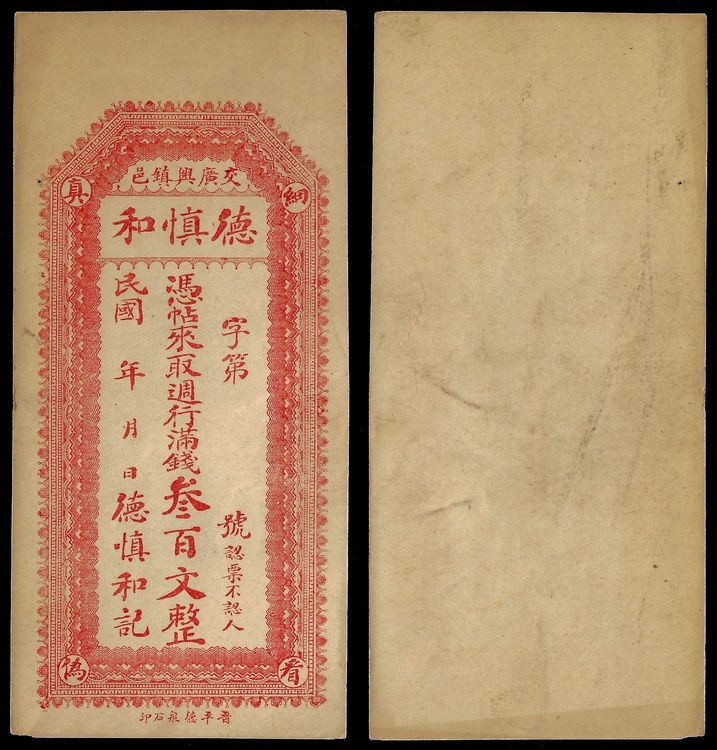 交廣興鎮邑
德慎和
細看真偽
字第　號
認票不認人
憑帖來取週行滿錢叁百文整
民國　年　月　日德慎和記
晋平德泉石印